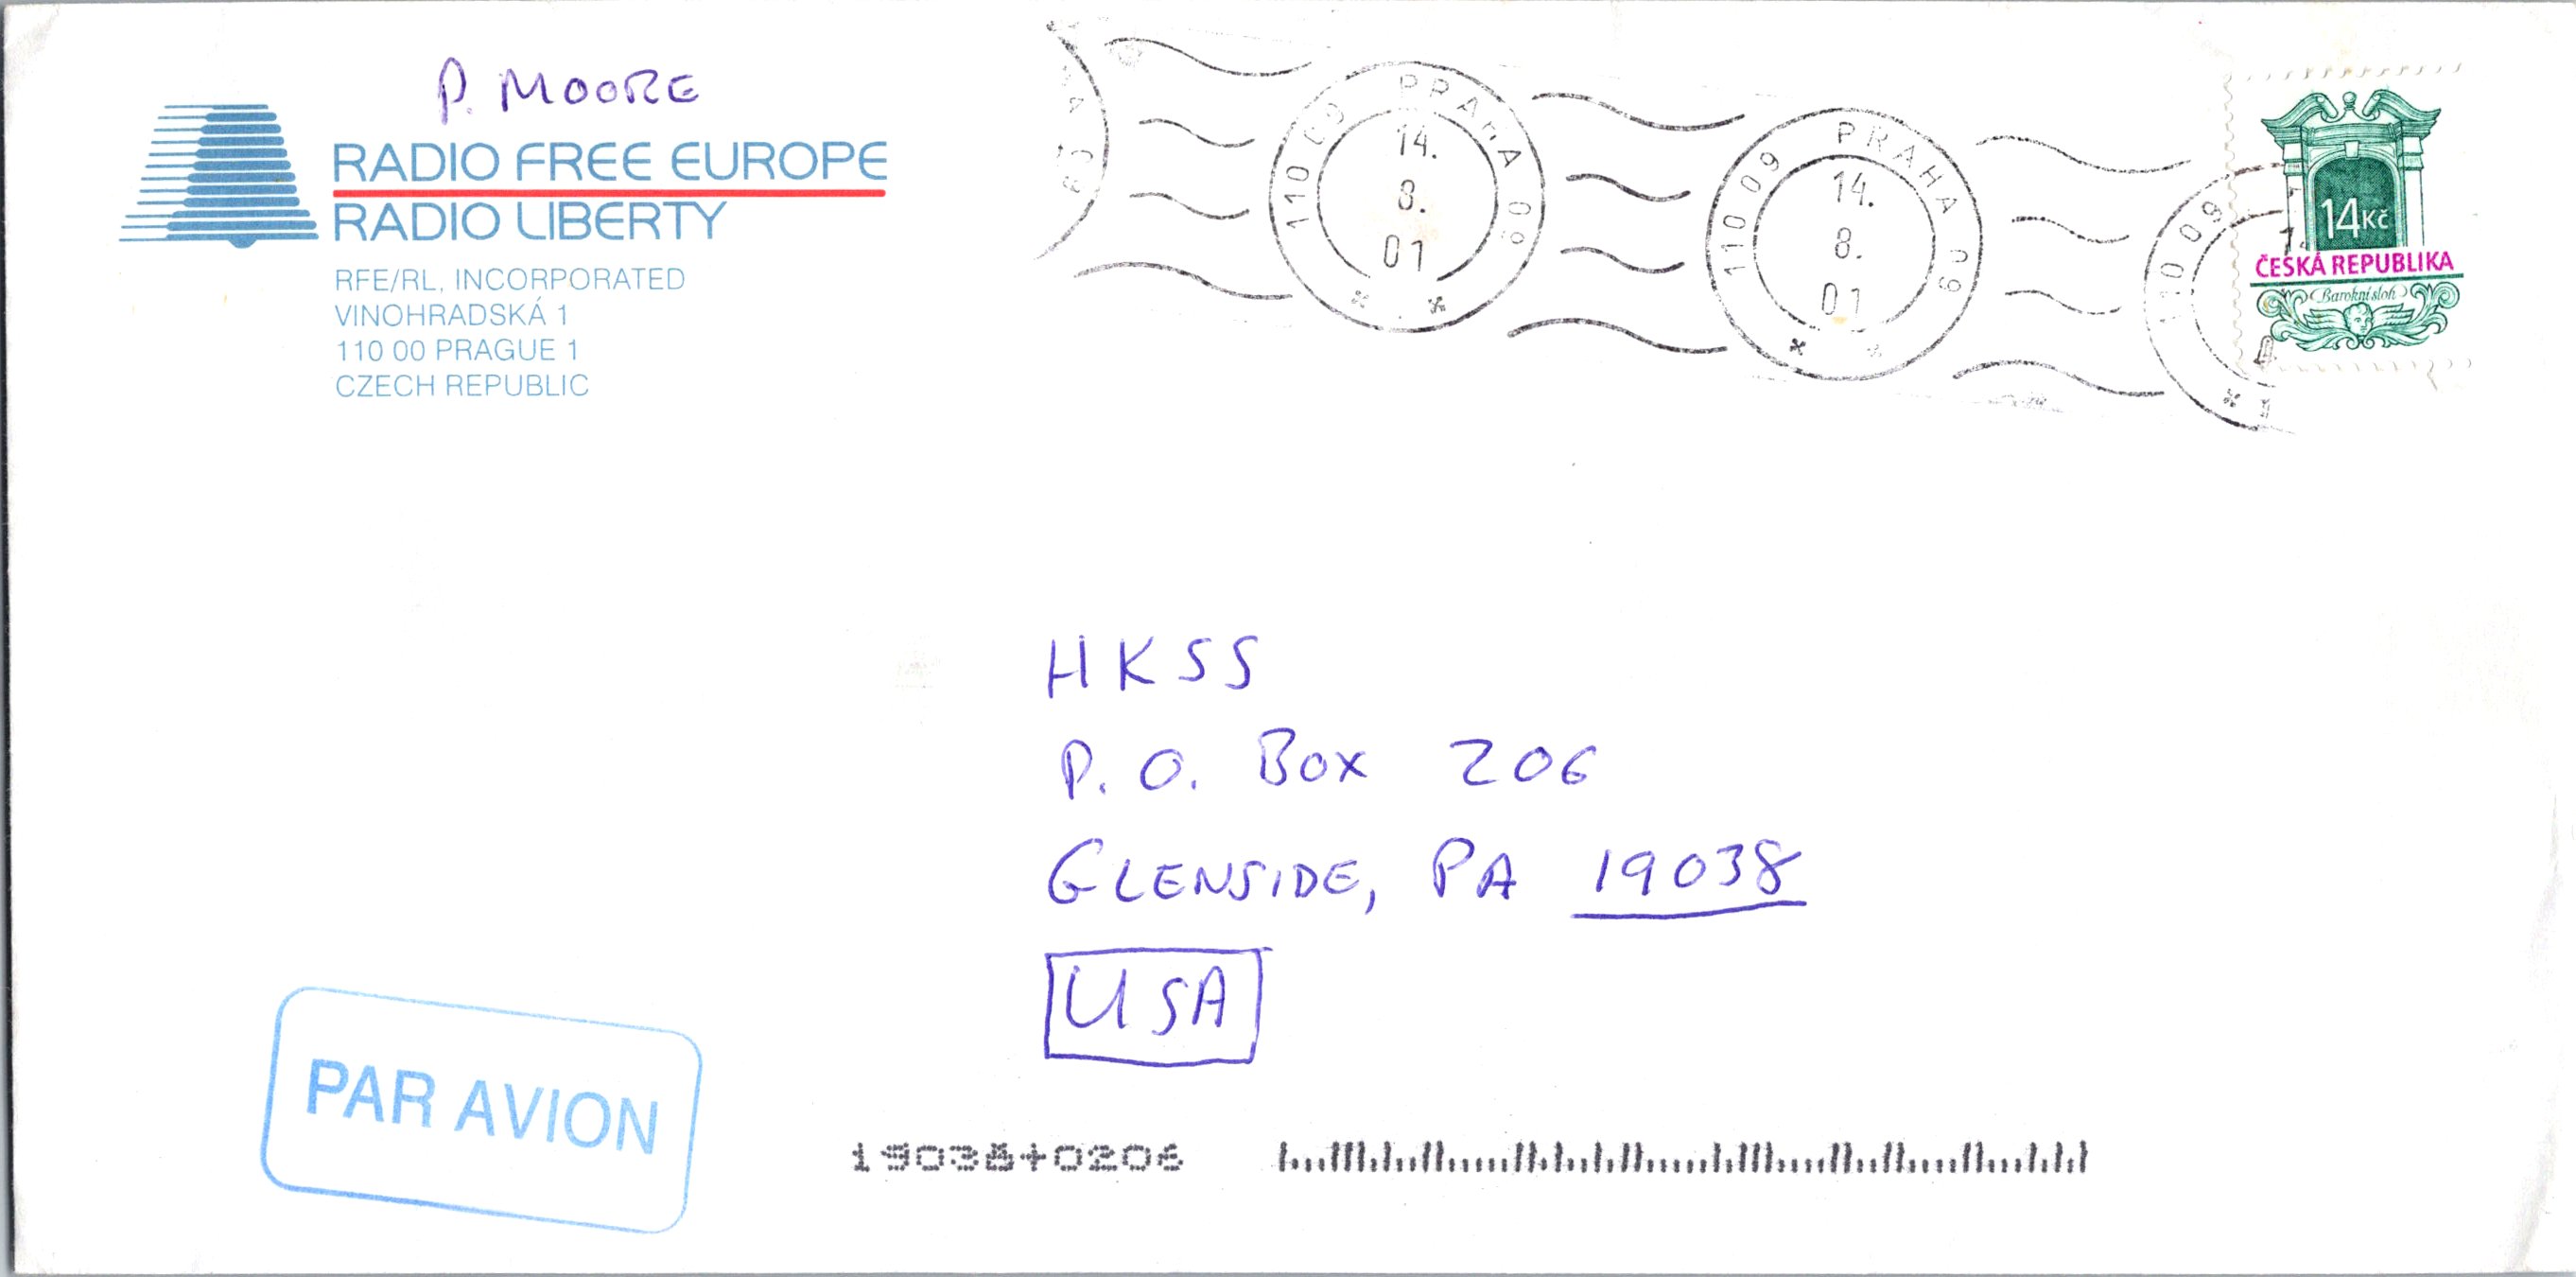 P. MOORE
RADIO FREE EUROPE
RADIO LIBERTY
RFE/RL, INCORPORATED
VINOHRADSKÁ 1
110 00 PRAGUE 1
CZECH REPUBLIC
110 09 PRAHA 09
14.
8.
01
110 09 PRAHA 09
14.
8.
01
110 09
14Kč
ČESKÁ REPUBLIKA
Barokní sloh
HKSS
P. O. BOX 206
GLENSIDE, PA 19038
USA
PAR AVION
19038+0206